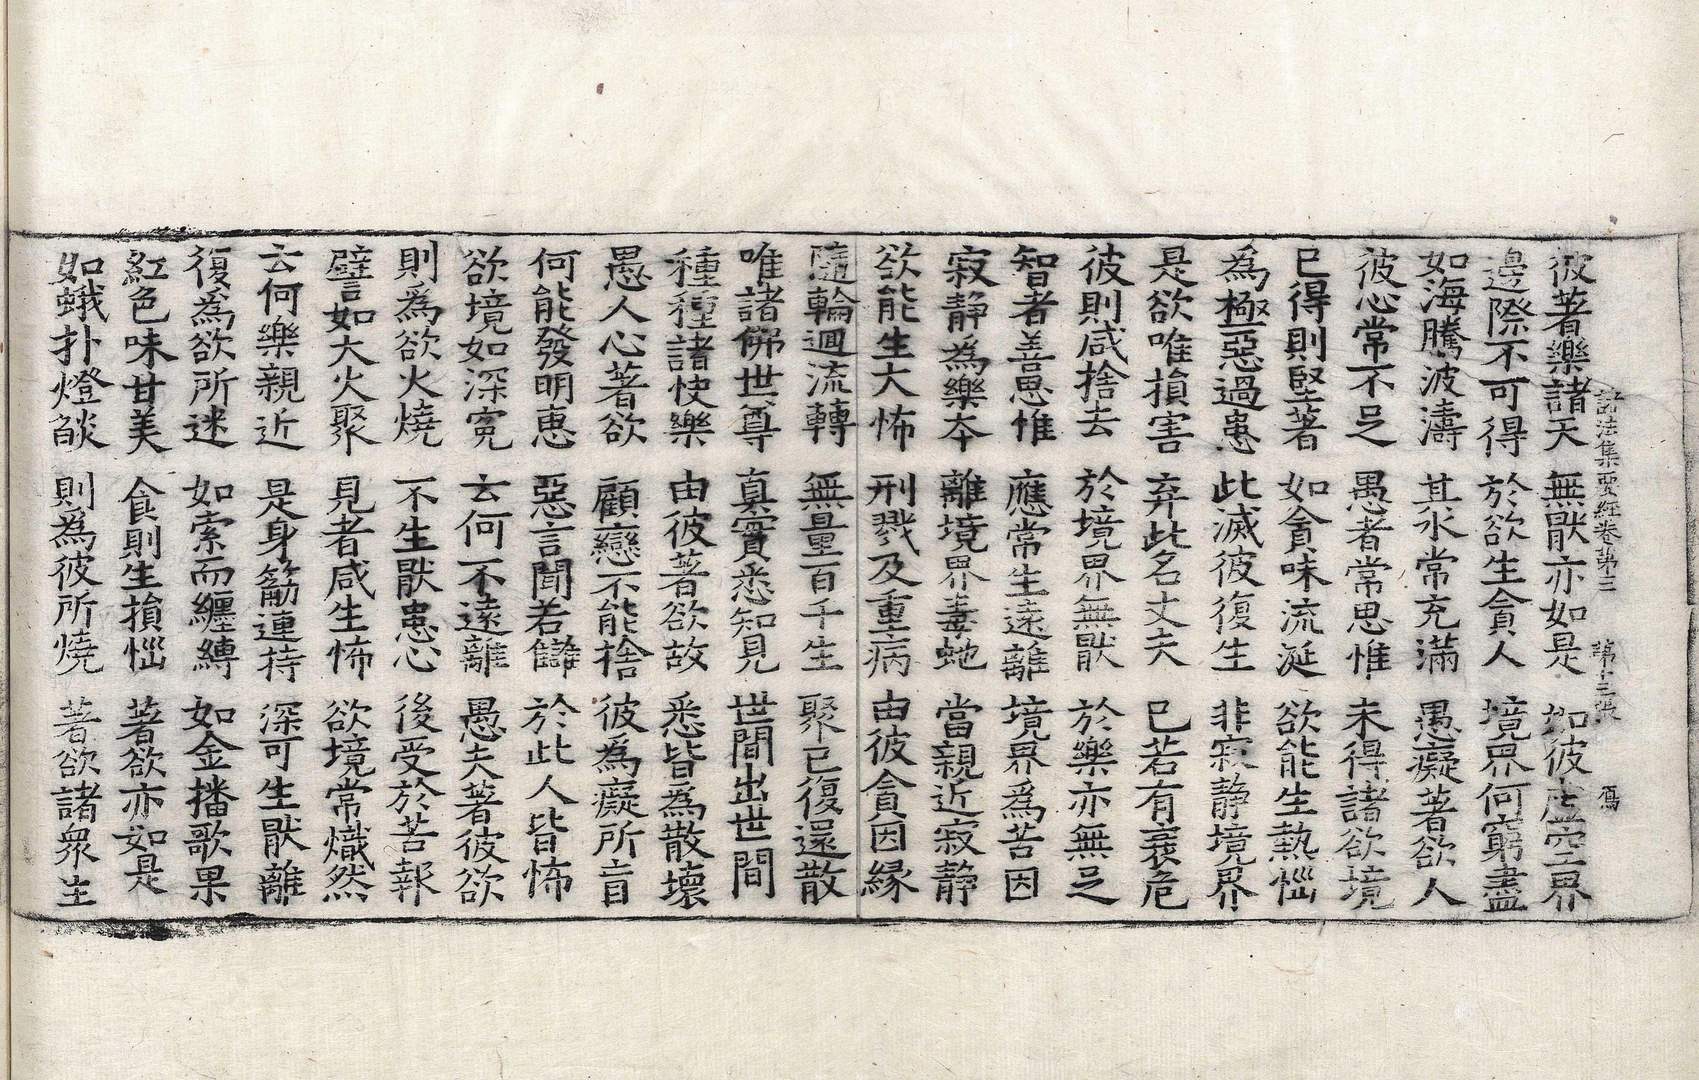 諸法集要經卷第三 第十三張 傷
彼著樂諸天 無猒亦如是 如彼虛空界
邊際不可得 於欲生貪人 境界何窮盡
如海騰波濤 其水常充滿 愚癡著欲人
彼心常不足 愚者常思惟 未得諸欲境
已得則堅著 如貪味流涎 欲能生熱惱
為極惡過患 此滅彼復生 非寂静境界
是欲唯損害 弃此名丈夫 已若有衰危
彼則咸捨去 於境界無猒 於樂亦無足
智者善思惟 應常生遠離 境界為苦因
寂静為樂夲 離境界毒虵 當親近寂静
欲能生大怖 刑戮及重病 由彼貪因緣
隨輪迴流轉 無量百千生 聚已復還散
唯諸佛世尊 真實悉知見 世間出世間
種種諸快樂 由彼著欲故 悉皆為散壞
愚人心著欲 顧戀不能捨 彼為癡所盲
何能發明惠 惡言聞若讎 於此人皆怖
欲境如深冤 云何不遠離 愚夫著彼欲
則為欲火燒 不生猒患心 後受於苦報
譬如大火聚 見者咸生怖 欲境常熾然
云何樂親近 是身筋連持 深可生猒離
復為欲所迷 如索而纒縛 如金播歌果
紅色味甘美 食則生損惱 著欲亦如是
如蛾扑燈燄 則為彼所燒 著欲諸衆生